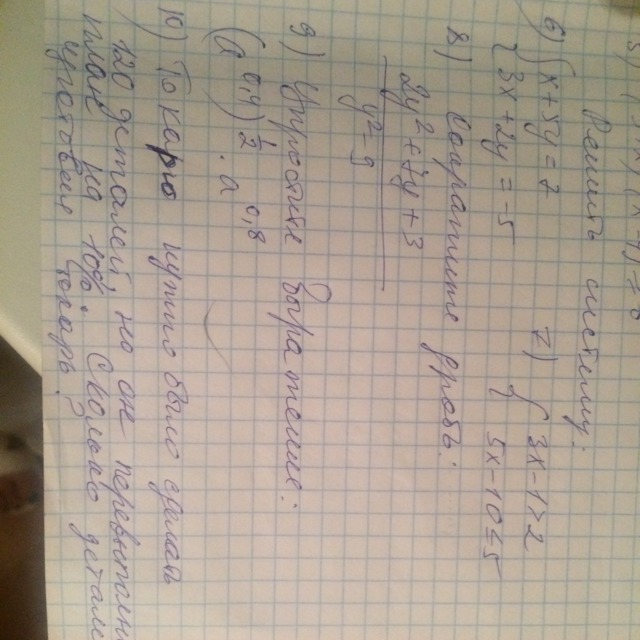 Решить систему:
6) { x + 5y = 7        7) { 3x - 1 > 2
{ 3x + 2y = -5        5x - 10 ≤ 5
8) Сократите дробь:
2y² + 7y + 3
y² - 9
9) Упростите выражение:
(a^0,4)^½ · a^0,8
10) Токарю нужно было сделать
120 деталей, но он перевыполнил
план на 10%. Сколько деталей